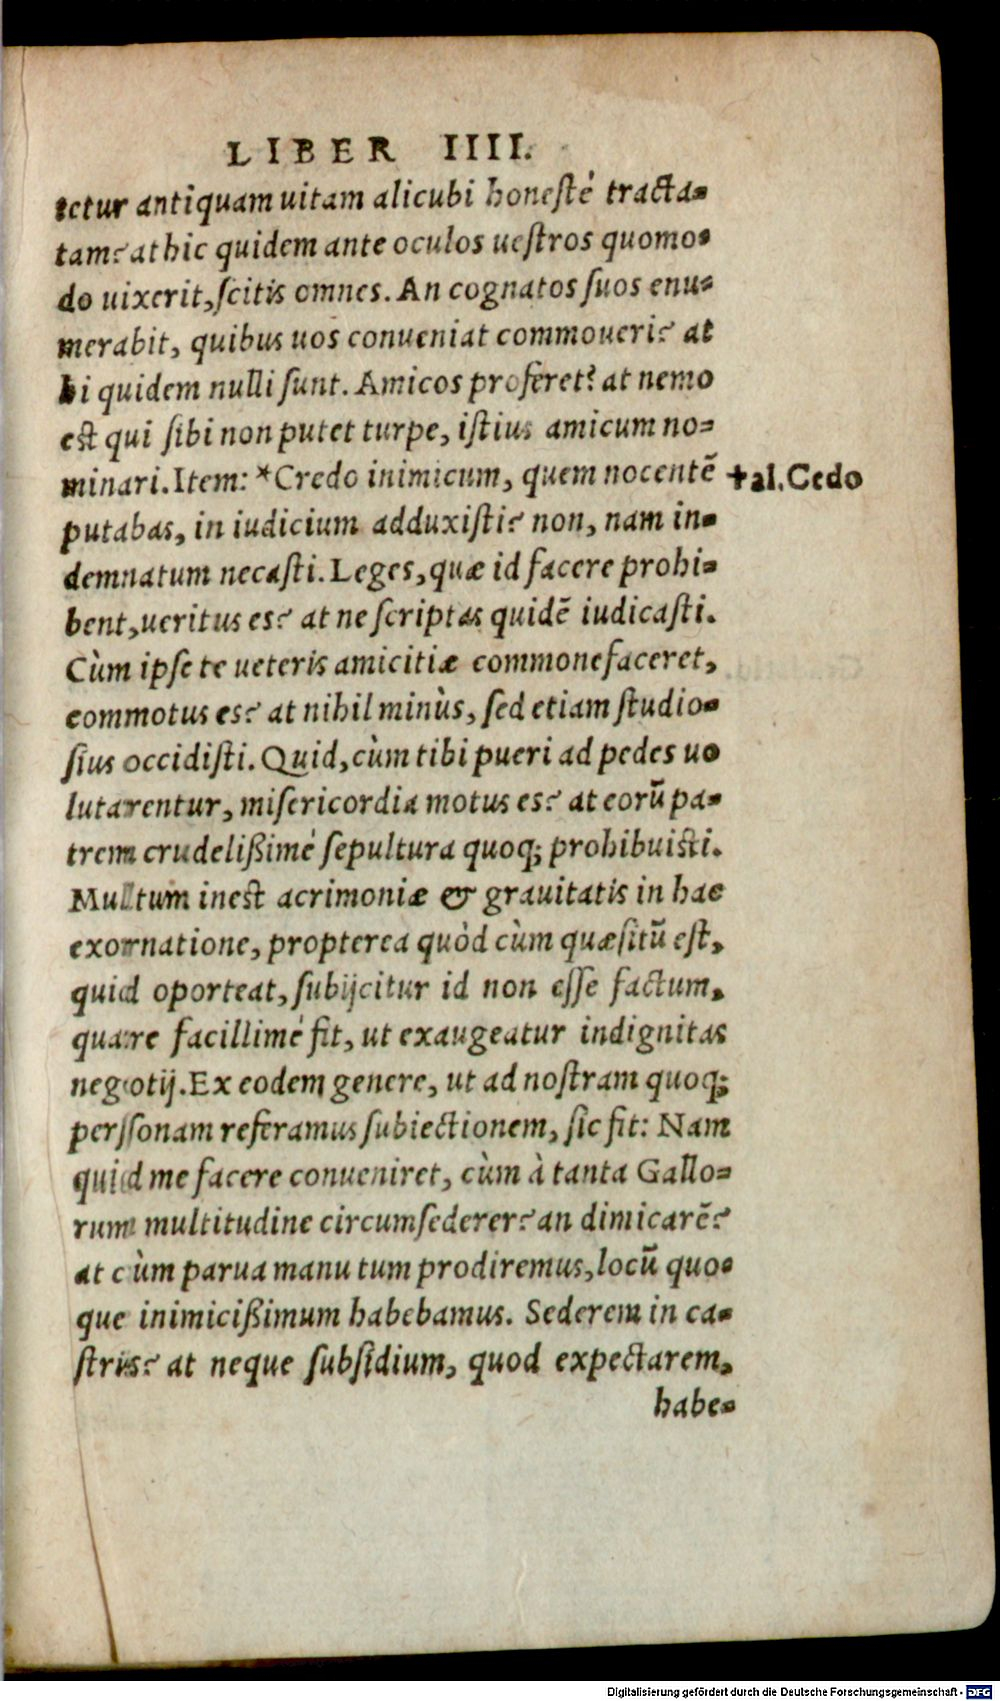 LIBER IIII.
tetur antiquam uitam alicubi honesté tracta-
tam? at hic quidem ante oculos uestros quomo-
do uixerit, scitis omnes. An cognatos suos enu-
merabit, quibus uos conueniat commoueri? at
hi quidem nulli sunt. Amicos proferet? at nemo
est qui sibi non putet turpe, istius amicum no-
minari. Item: *Credo inimicum, quem nocentẽ
✝al. Cedo
putabas, in iudicium adduxisti? non, nam in-
demnatum necasti. Leges, quæ id facere prohi-
bent, ueritus es? at ne scriptas quidẽ iudicasti.
Cùm ipse te ueteris amicitiæ commonefaceret,
commotus es? at nihil minùs, sed etiam studio-
sius occidisti. Quid, cùm tibi pueri ad pedes uo
lutarentur, misericordia motus es? at eorũ pa-
trem crudelißimé sepultura quoq; prohibuisti.
Multum inest acrimoniæ & grauitatis in hac
exornatione, propterea quòd cùm quæsitũ est,
quid oporteat, subijcitur id non esse factum,
quare facillimé fit, ut exaugeatur indignitas
negotij. Ex eodem genere, ut ad nostram quoq;
perssonam referamus subiectionem, sic fit: Nam
quid me facere conueniret, cùm à tanta Gallo-
rum multitudine circumsederer? an dimicarẽ?
at cùm parua manu tum prodiremus, locũ quo-
que inimicißimum habebamus. Sederem in ca-
stris? at neque subsidium, quod expectarem,
habe-
Digitalisierung gefördert durch die Deutsche Forschungsgemeinschaft - DFG